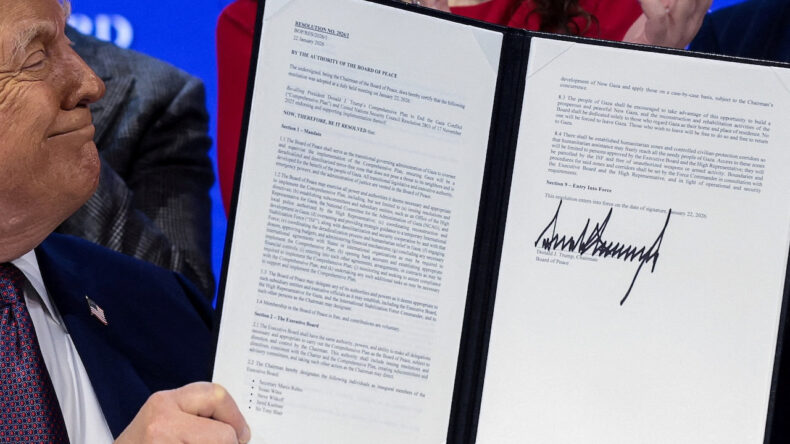 RESOLUTION NO. 2026/1
BOP/RES/2026/1
22 January 2026
BY THE AUTHORITY OF THE BOARD OF PEACE
The undersigned, being the Chairman of the Board of Peace, does hereby certify that the following
resolution was adopted at a duly held meeting on January 22, 2026:
Recalling President Donald J. Trump's Comprehensive Plan to End the Gaza Conflict
("Comprehensive Plan") and United Nations Security Council Resolution 2803 of 17 November
2025 endorsing and supporting implementation thereof;
NOW, THEREFORE, BE IT RESOLVED that:
Section 1 – Mandate
1.1 The Board of Peace shall serve as the transitional governing administration of Gaza to oversee
and supervise the implementation of the Comprehensive Plan, ensuring Gaza will be a
deradicalized and demilitarized terror-free zone that does not pose a threat to its neighbors and is
developed for the benefit of the people of Gaza. All transitional legislative and executive authority,
emergency powers, and the administration of justice are vested in the Board of Peace.
1.2 The Board of Peace may exercise all power and authorities it deems necessary and appropriate
to implement the Comprehensive Plan, including, but not limited to
1.3 The Board of Peace may delegate any of its authorities and powers as it deems appropriate to
such subsidiary entities and executive officials as it may establish, including the Executive Board,
the High Representative for Gaza, and the International Stabilization Force Commander, and to
such other persons as the Chairman may designate.
1.4 Membership in the Board of Peace is free, and contributions are voluntary.
Section 2 – The Executive Board
2.1 The Executive Board shall have the same authority, powers, and ability to make all delegations
necessary and appropriate to carry out the Comprehensive Plan as the Board of Peace, subject to
direction and control by the Chairman. This authority shall include issuing resolutions and
directives, consistent with the Charter and the Comprehensive Plan, creating subcommittees and
advisory committees, and taking such other actions as the Chairman may direct.
2.2 The Chairman hereby designates the following individuals as inaugural members of the
Executive Board:
• Secretary Marco Rubio
• Susan Wiles
• Steve Witkoff
• Jared Kushner
• Sir Tony Blair
development of New Gaza and apply those on a case-by-case basis, subject to the Chairman's
concurrence.
8.3 The people of Gaza shall be encouraged to take advantage of this opportunity to build a
prosperous and peaceful New Gaza, and the reconstruction and rehabilitation activities of the
Board shall be dedicated solely to those who regard Gaza as their home and place of residence. No
one will be forced to leave Gaza. Those who wish to leave will be free to do so and free to return
to Gaza.
8.4 There shall be established humanitarian zones and controlled civilian-protection corridors so
that humanitarian assistance may freely reach all the needy people of Gaza. Access to these zones
will be limited to persons approved by the Executive Board and the High Representative; they will
be patrolled by the ISF and free of unwarranted weapons or armed activity. Boundaries and
procedures for said zones and corridors shall be set by the Force Commander in consultation with
the Executive Board and the High Representative, and in light of operational and security
requirements.
Section 9 – Entry Into Force
This resolution enters into force on the date of signature, January 22, 2026.
Donald J. Trump, Chairman
Board of Peace